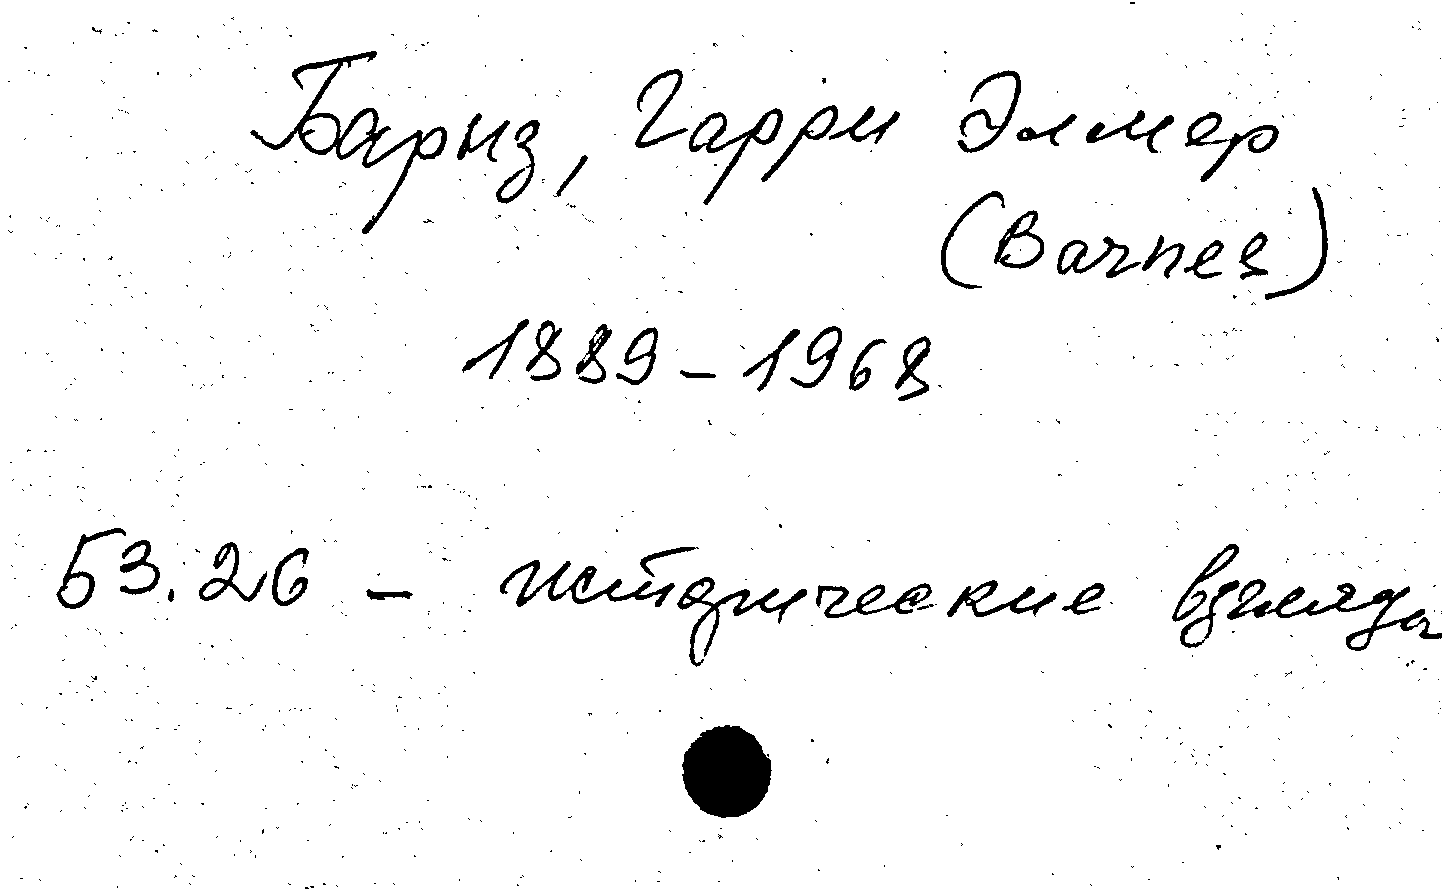 Барнз, Гарри Элмер
(Barnes)
1889-1968
53.26 - исторические взгляды